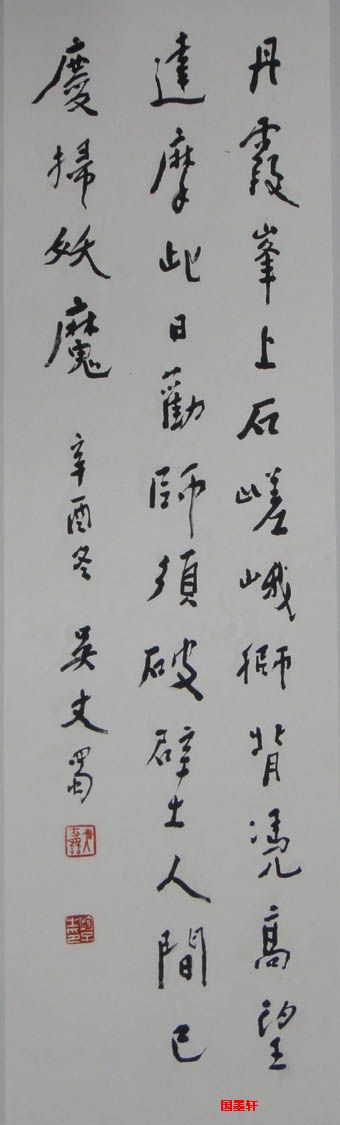 丹霞峯上石嵯峨獅背凴高望
達摩此日勸師須破壁人間已
慶掃妖魔
辛酉冬 吴丈蜀
国墨轩